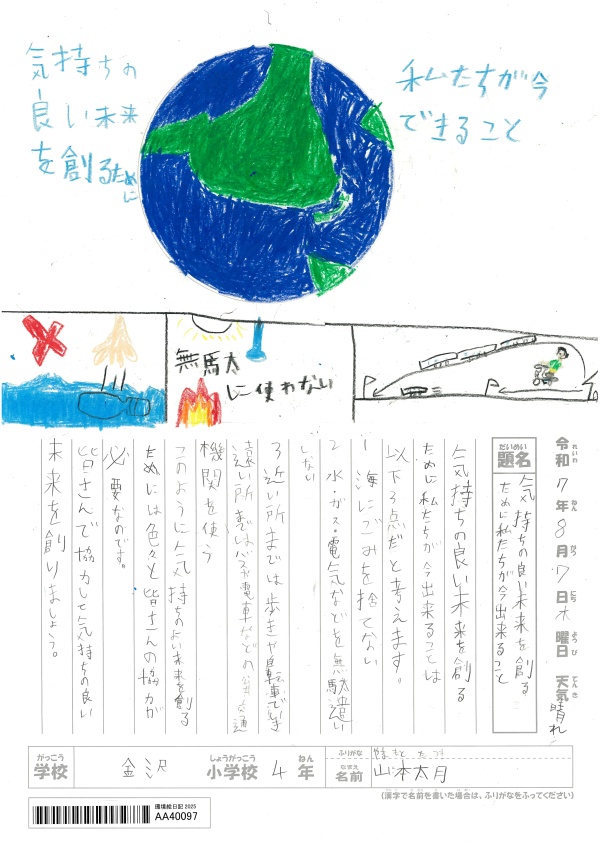 私たちが今
できること
気持ちの
良い未来
を創るために
無駄
に使わない
令和7年8月7日木曜日 天気晴れ
れいわ ねん がつ にち ようび てんき
だいめい
題名
気持ちの良い未来を創る
ために私たちが今出来ること
気持ちの良い未来を創る
ために私たちが今出来ることは
以下3点だと考えます。
1 海にごみを捨てない
2 水・ガス・電気などを無駄遣い
しない
3 近い所までは歩きや自転車で
遠い所まではバスや電車などの公共交通
機関を使う
このように気持ちのよい未来を創る
ためには色々と皆さんの協力が
必要なのです。
皆さんで協力して気持ちの良い
未来を創りましょう。
がっこう しょうがっこう ねん
学校 金沢 小学校 4年
ふりがな
なまえ
名前 山本太月
(漢字で名前を書いた場合は、ふりがなをふってください)
環境絵日記 2025
AA40097